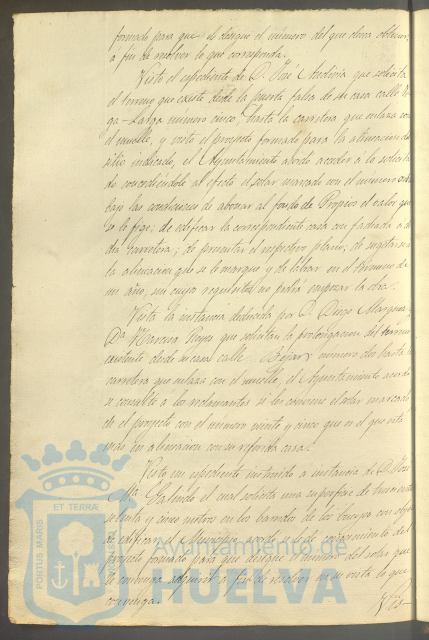 formado para que se desque el número del que desea obtener,
á fin de resolver lo que corresponda.
Visto el espediente de D. José Andivia que solicita
el terreno que existe desde la puerta falsa de su casa calle
ga-Larga número cinco, hasta la carretera que enlaza con
el muelle, y visto el proyecto formado para la alineacion del
sitio indicado, el Ayuntamiento acordó acceder á lo solicita
do concediéndole al efecto el solar marcado con el número
bajo las condiciones de abonar al fondo de Propios el valor que
se le fije; de edificar la correspondiente casa con fachada á
dha carretera; de presentar el respectivo plano; de sugetarse á
la alineacion que se le marque y de labrar en el término de
un año, sin cuyos requisitos no podrá empezar la obra.
Vista la instancia deducida por D. Diego Marquez y
Dª Reyes que solicitan la prolongacion del terreno
existente desde su casa calle Béjar número dos hasta la
carretera que enlaza con el muelle, el Ayuntamiento acordó
se consulte á los reclamantes si les conviene el solar marcado
en el proyecto con el número veinte y cinco que es el que está
más en alineacion con su referida casa.
Visto un espediente instruido á instancia de D. José
Mª Galindo el cual solicita una superficie de treinta
y cinco metros en los
de edificar, el Municipio acordó
proyecto formado para que designe el número del solar que
le convenga adquirir á fin de resolver en su vista lo que
convenga.
PORTUS MARIS ET TERRAE
Ayuntamiento de
HUELVA